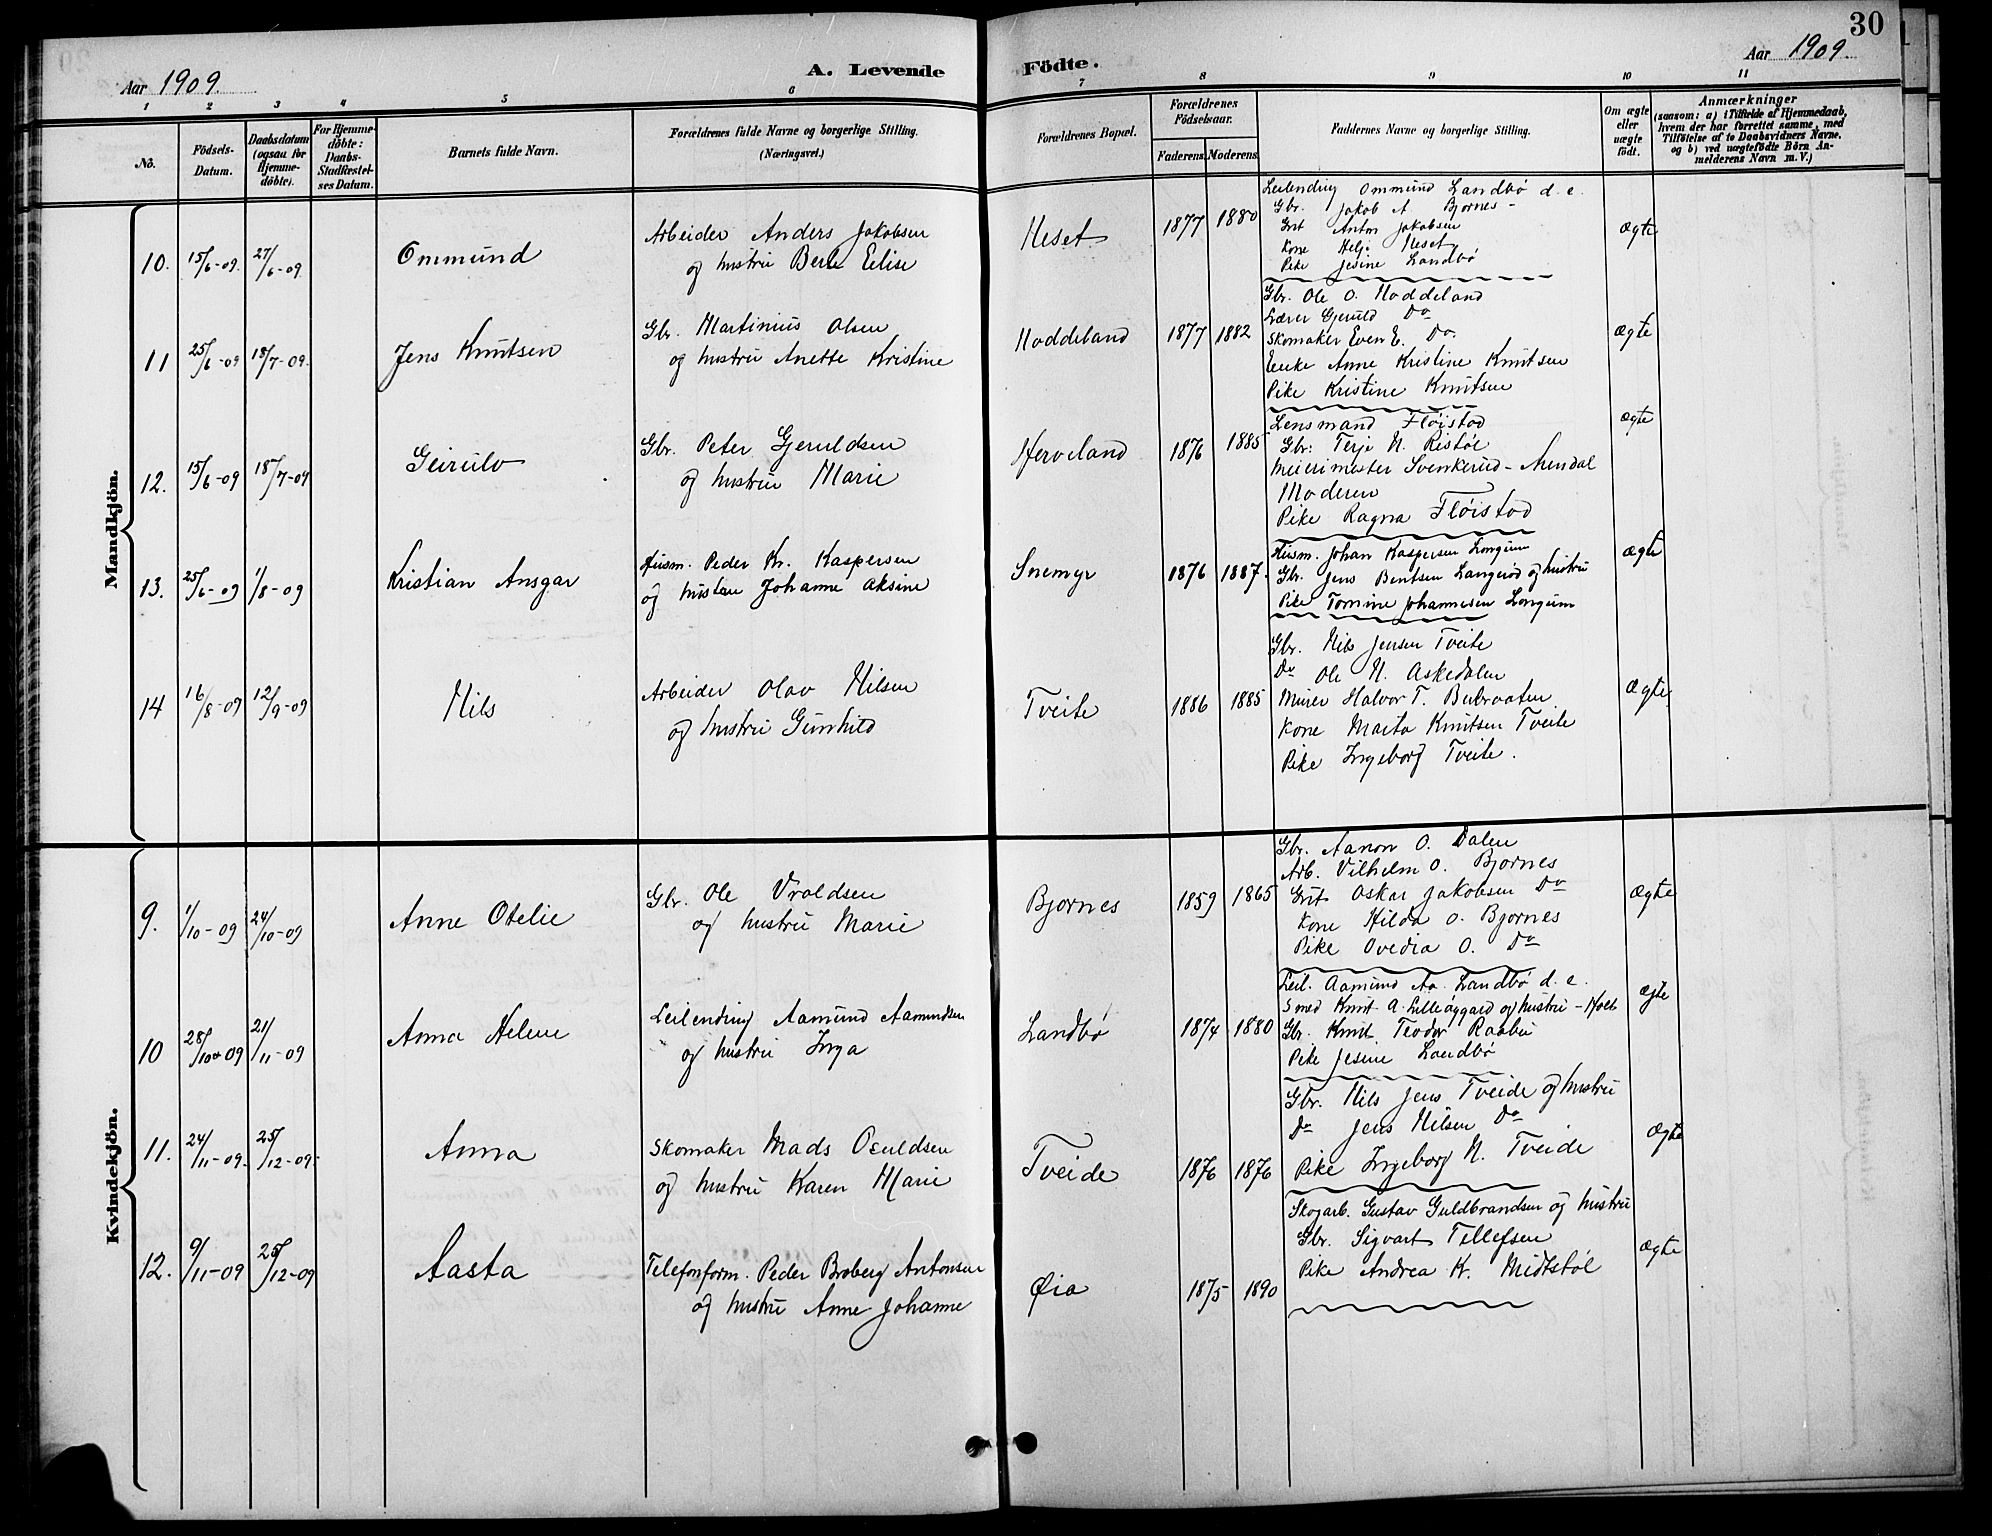 30
Aar 1909.
A. Levende Födte.
Aar 1909.
1 2 3 4 5 6 7 8 9 10 11
No.
Födsels-Datum.
Daabsdatum (ogsaa for Hjemme-döbte).
For Hjemme-döbte: Daabs-Stadfæstel-ses Datum.
Barnets fulde Navn.
Forældrenes fulde Navne og borgerlige Stilling. (Næringsvei.)
Forældrenes Bopæl.
Forældrenes Födselsaar.
Faderens Moderens
Faddernes Navne og borgerlige Stilling.
Om ægte eller uægte födt.
Anmærkninger
(saasom: a) i Tilfælde af Hjemmedaab, hvem der har forrettet samme, med Tilföielse af to Daabsvidners Navne, og b) ved uægtefödte Börn An-melderens Navn m. V.)
Mandkjön.
10. 15/6-09. 27/6-09 Ommund
Arbeider Anders Jakobsen
og hustru Berte Elise
Neset 1877 1880
Leilending Ommund Landbø d. e.
Gbr. Jakob A Bjornes -
Grt Anton Jakobsen
Kone Helje Neset
Pike Jesine Landbø
Ægte
11 25/6-09 18/7-09. Jens Knutsen
Gbr. Martinius Olsen
og hustru Anette Kristine
Noddeland 1877 1882
Gbr. Ole O. Noddeland
Lærer Gjeruld Do
Skomaker Even E. Do.
Enke Anne Kristine Knutsen
Pike Kristine Knutsen
Ægte
12. 15/6-09 18/7-09 Geirulv
Gbr. Peter Gjeruldsen
og hustru Marie
Herveland 1876 1885
Lensmand Fløistad
Gbr: Terje N. Ristøl
Meierimester Svenkerud - Arendal
Moderen
Pike Ragna Fløistad
Ægte
13. 25/6-09 1/8-09 Kristian Ansgar
Husm. Peder Kr. Kaspersen
og hustru Johanne Aksine
Snemyr 1876 1887.
Husm. Johan Kaspersen Longum
Gbr. Jens Bentsen Langerød og hustru
Pike Tomine Johannesen Longum
Ægte
14 16/8-09 12/9-09 Nils
Arbeider Olav Nilsen
og hustru Gunhild
Tveite 1886 1885
Gbr. Nils Jensen Tveite
Do Ole N. Askedalen
Murer Halvor T. Bubraaten
Kone Marta Knutsen Tveite
Pike Ingeborg Tveite.
Ægte
Kvindekjön.
9. 1/10-09 24/10-09 Anne Otelie
Gbr. Ole Vraldsen
og hustru Marie
Bjornes 1859 1865
Gbr. Aanon O. Dalen
Arb. Vilhelm O. Bjornes
Grt Oskar Jakobsen Do
Kone Hilda O. Bjornes
Pike Ovedia O. Do
Ægte
10 28/10-09 21/11-09 Anna Helene
Leilending Aamund Aamundsen
og hustru Inga
Landbø 1874 1880
Leil. Aamund Aa. Landbø d. e.
Smed Knut A. Lilleaggard og hustru - Holt
Gbr. Knut Teodor Raabu
Pike Jesine Landbø
Ægte
11. 24/11-09. 25/12-09. Anna
Skomaker Mads Osuldsen
og hustru Karen Marie
Tveide 1876 1876
Gbr. Nils Jens Tveide og hustru
Do Jens Nilsen Do
Pike Ingeborg N. Tveide
Ægte
12. 9/11-09 26/12-09 Aasta
Telefonform. Peder Broberg Antonsen
og hustru Anne Johanne
Øia 1875 1890
Skogarb. Gustav Guldbrandsen og hustru
Gbr. Sigvart Tellefsen
Pike Andrea K. Midtstøl
Ægte